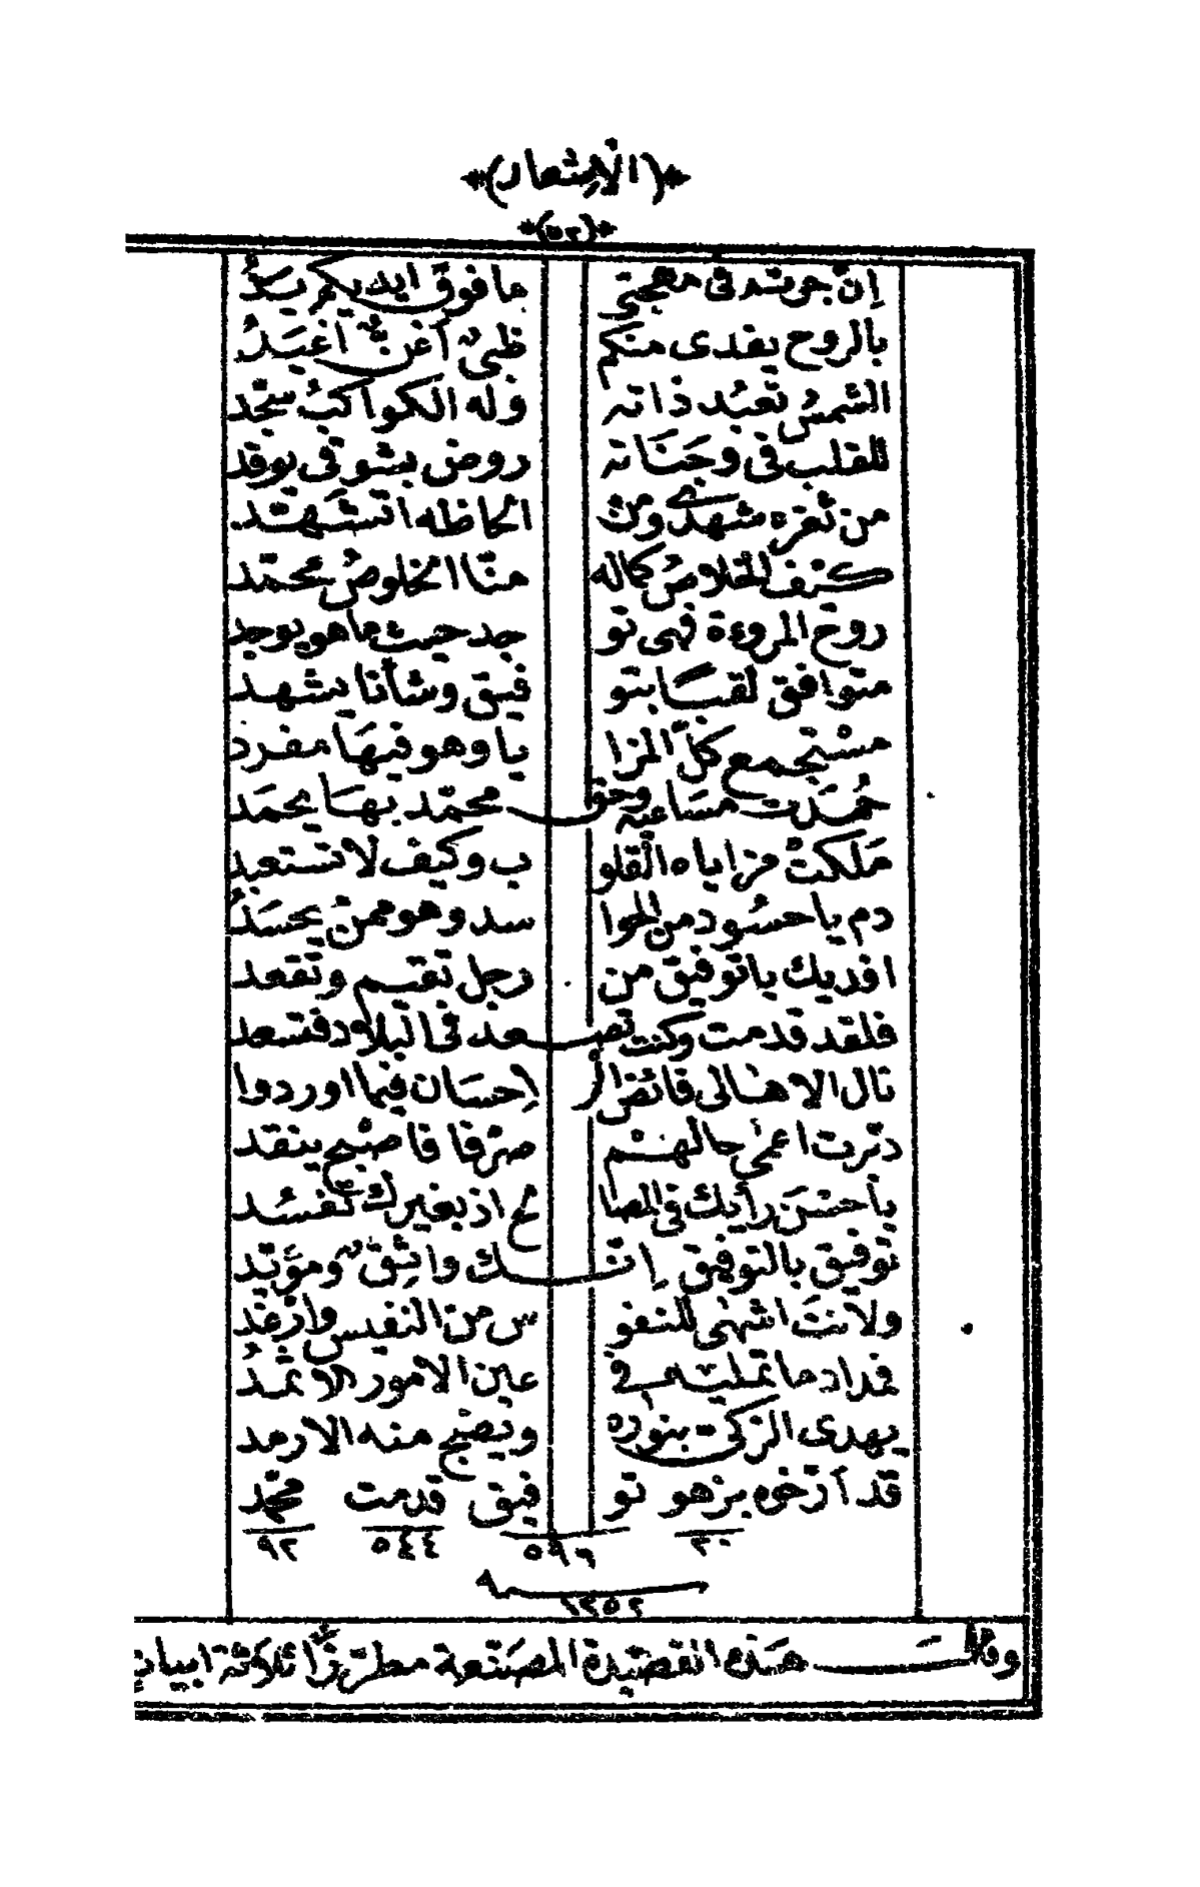 ﴿الإشعار﴾
﴿٥٢﴾
إنّ جرته فى مهجتى ما فوق يريدُ
بالروح يفدى منكم ظبىٌ أغنٌّ أغيَدُ
الشمسُ تعبُد ذاته وله الكواكبُ سجّد
للقلب فى وجَناته روض بشوقى يوقد
من ثغره شهدى ومن الحاظه اتشهّد
كنف الخلاص كماله منّا الخلوصُ محمّد
روح المروءة فهى تو جد حيث ما هو يوجد
متوافق لقبًا بتو فيق وشأنا يشهد
مسْتجمع كلّ المزا يا وهو فيهَا مفرد
حُمدَت مسَاعيه وحق محمّد بهَا يحمَد
مَلكتْ مزاياه القلو ب وكيف لا تستعبد
دم يا حسُود من الحوا سد وهو ممنْ يحسَدُ
افديك يا توفيق من رجل تقيم وتقعد
فلقد قدمت وكنت تصـ ـعد فى البلاد فتسعد
نال الاهالى فائض الْـ إحسان فيما اوردوا
دبّرت اعمىٰ حالهمْ صرْفا فاصبْح ينقد
يا حسْنَ رأيك فى المصا لح اذ بغيرك تفسُد
توفيق بالتوفيق إنّـ ـك واثِقٌ ومؤَيّد
ولأنتَ اشهىٰ للنفو س من النفيس وارْغَد
فمداد ما تمليه فى عين الامور الاثمدُ
يهدى الزكىّ بنوره ويصْبح منه الارمد
قد أرّخوه بزهو تو فيق قدمت محمّد
٢٠ ٥٩٦ ٥٤٤ ٩٢
١٢٥٢
وقلت هَذه القصَيدة المصَنّعة مطرّزًا ثلاثة ابيات